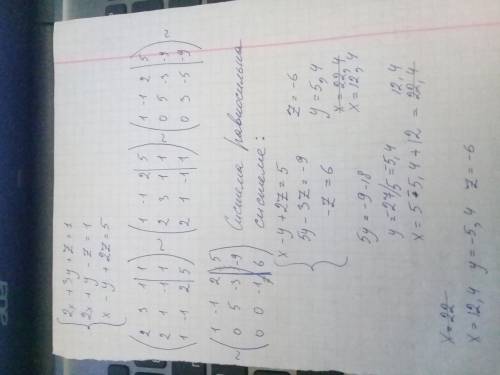 { 2x + 3y + z = 1
2x + y - z = 1
x - y + 2z = 5
( 2 3 1 | 1
2 1 -1 | 1
1 -1 2 | 5 ) ~ ( 1 -1 2 | 5
2 3 1 | 1
2 1 -1 | 1 ) ~ ( 1 -1 2 | 5
0 5 -3 | -9
0 3 -5 | -9 ) ~
~ ( 1 -1 2 | 5
0 5 -3 | -9
0 0 -1 | 6 )
Система равносильна
системе:
{ x - y + 2z = 5
5y - 3z = -9
-z = 6
z = -6
y = 5,4
x = 22,4
x = 12,4
5y = -9 - 18
y = 27/5 = 5,4
x = 5 + 5,4 + 12 = 22,4
12,4
x = 22
x = 12,4 y = -5,4 z = -6